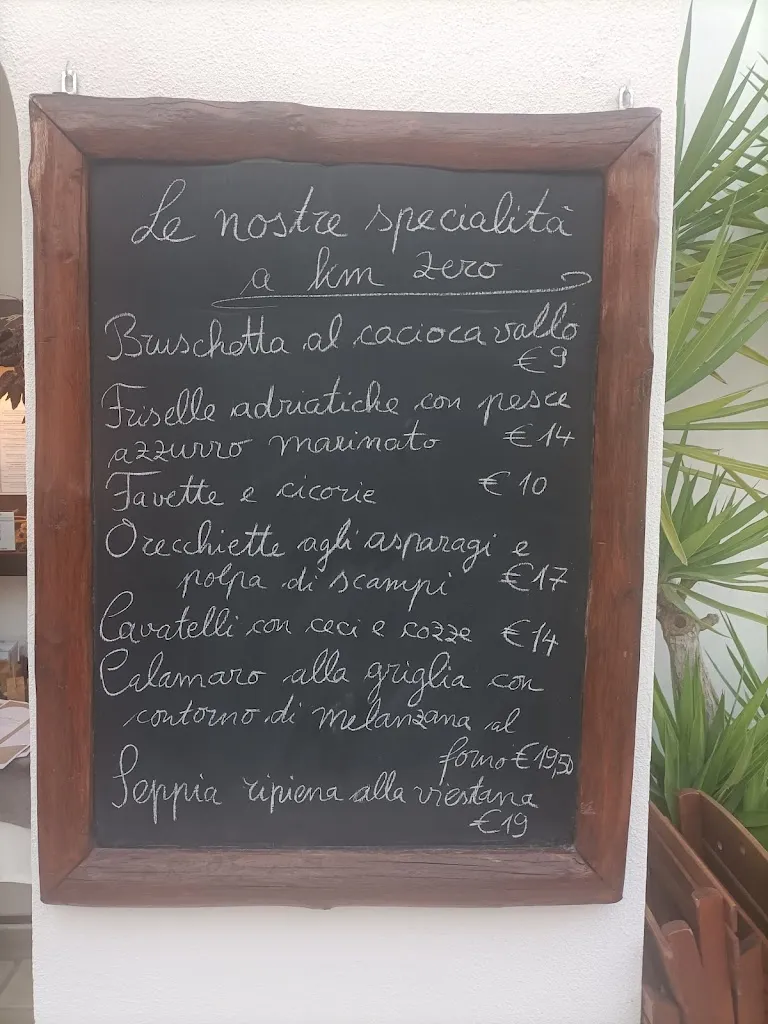 Le nostre specialità
a km zero
Bruschetta al caciocavallo
€ 9
Friselle adriatiche con pesce
azzurro marinato € 14
Favette e cicorie € 10
Orecchiette agli asparagi e
polpa di scampi € 17
Cavatelli con ceci e cozze € 14
Calamaro alla griglia con
contorno di melanzana al
forno € 19,50
Seppia ripiena alla viestana
€ 19